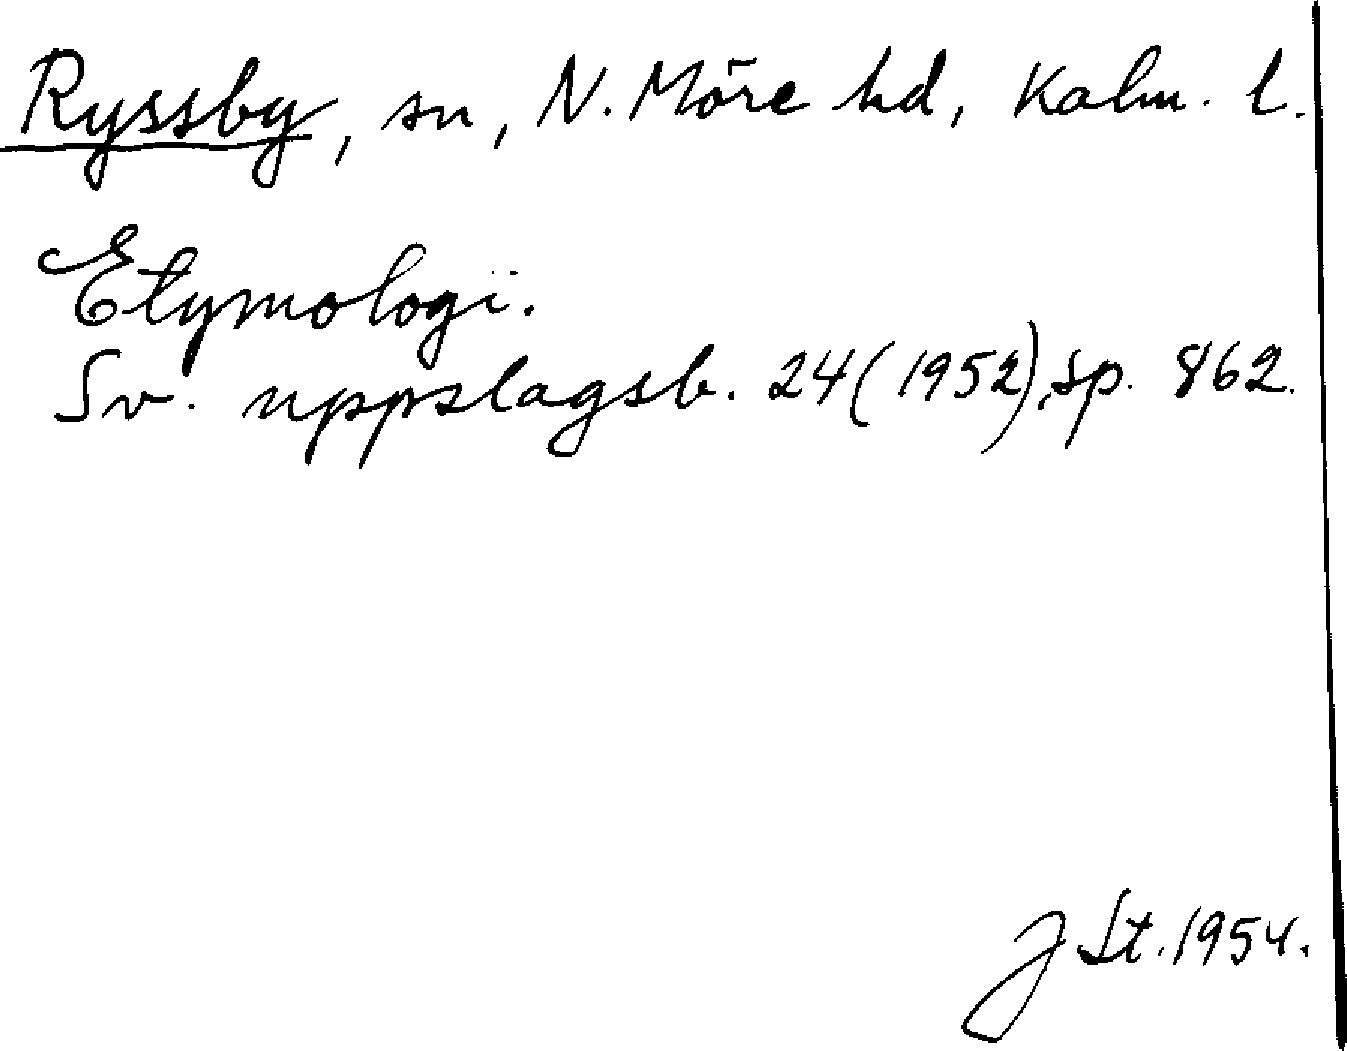 Ryssby, sn, N. Möre hd, Kalm. l.
Etymologi.
Sv. uppslagsb. 24 (1952), sp. 862.
J St. 1954.